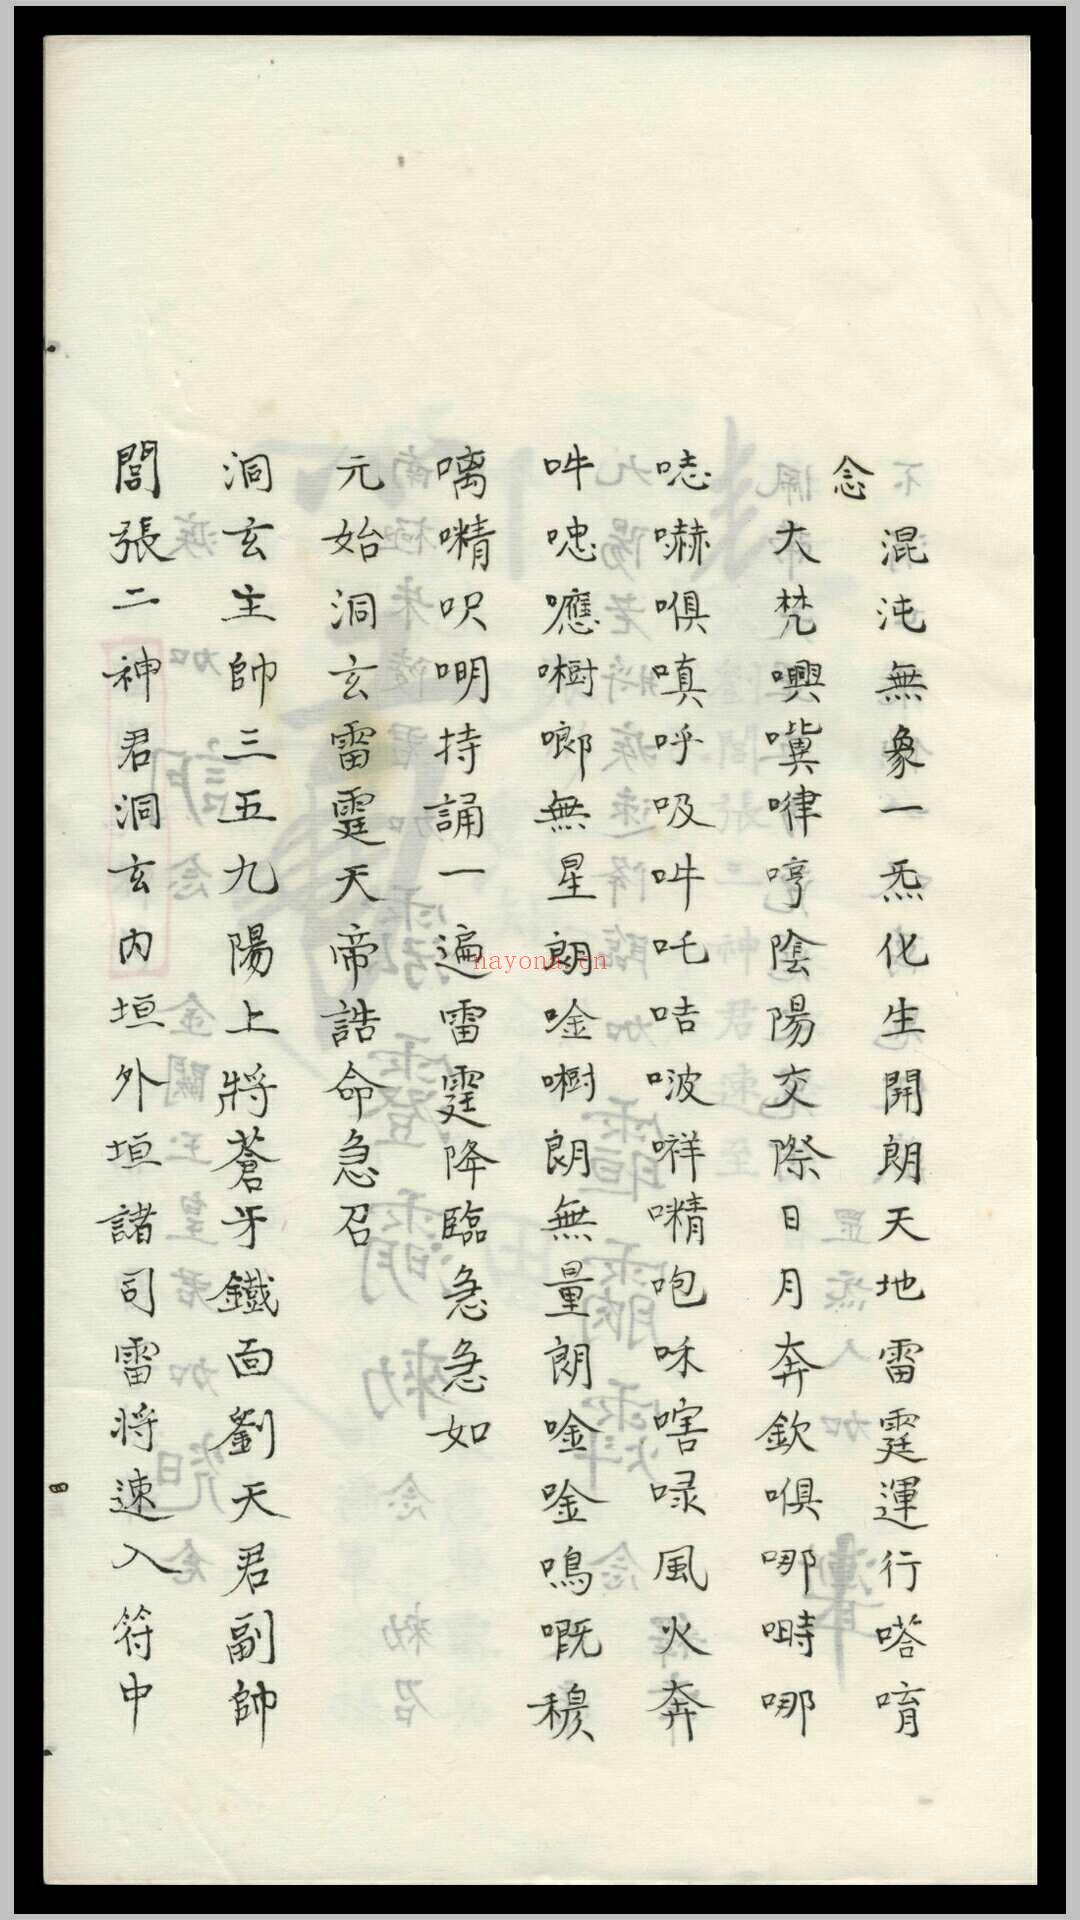 念
混沌無象一炁化生開朗天地雷霆運行嗒唷
大梵㘉嘳嘽哼陰陽交際日月奔欽嗔哪㖷哪
唗嚇嗔呼吸吽吒咭啵哶𠹌咆咊嗐𠱥風火奔
吽唿噟𠽱啷無星朗唫𠽱朗無量朗唫唫鳴嘅穆
𠺕呎明持誦一遍雷霆降臨急急如
元始洞玄雷霆天帝誥命急召
洞玄主帥三五九陽上將蒼牙鐵面劉天君副帥
閻張二神君洞玄內垣外垣諸司雷將速入符中
nayona.cn